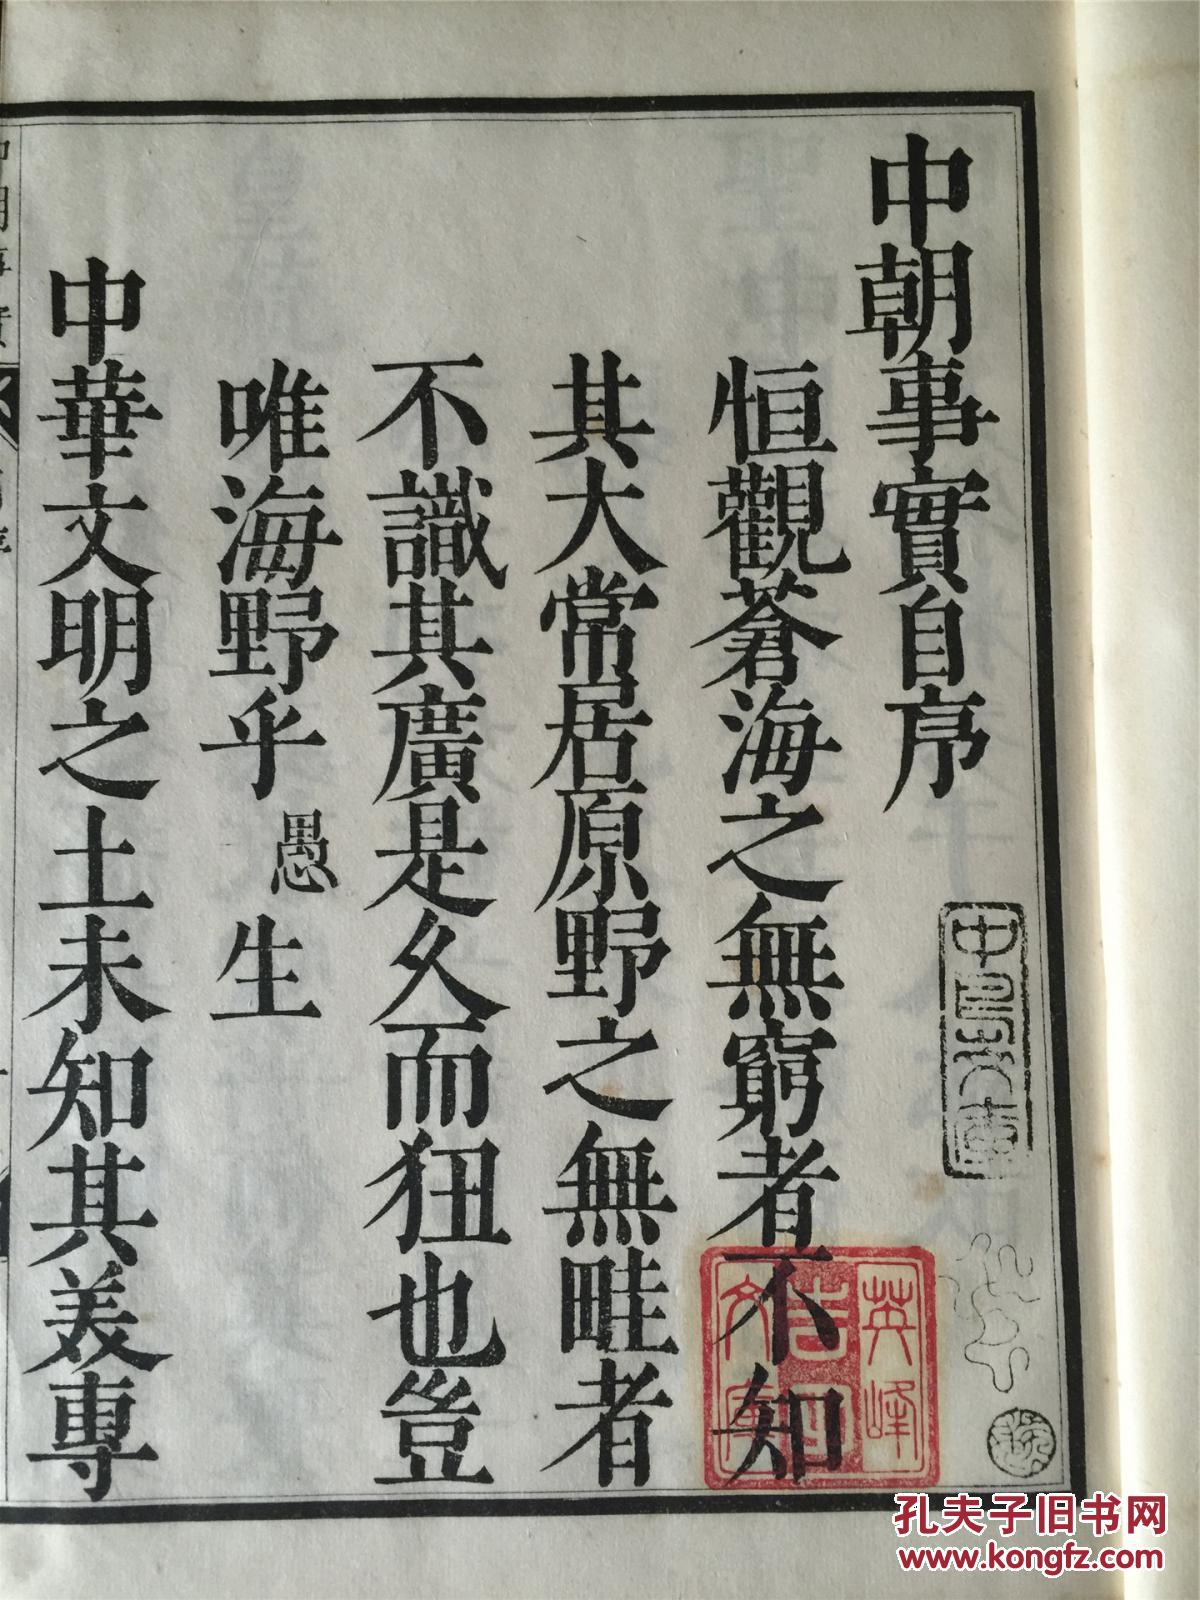 中朝事實自序
恒觀蒼海之無窮者不知
其大常居原野之無畦者
不識其廣是久而狃也豈
唯海野乎愚生
中華文明之土未知其美專
中朝事實
英峰
吉田
文庫
孔夫子旧书网
www.kongfz.com